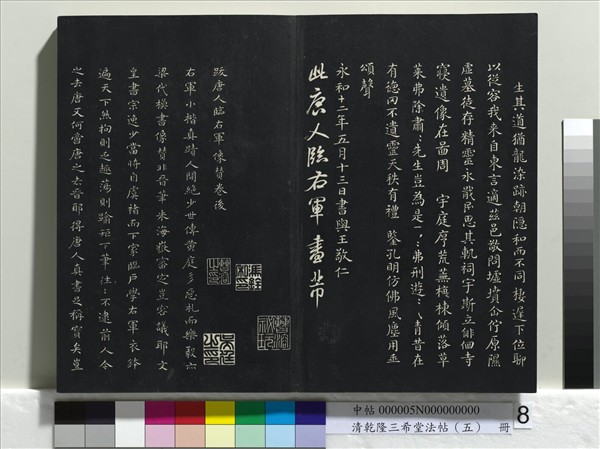 生其道猶龍染跡朝隱和而不同棲遲下位聊
以從容我來自東言適茲邑敬問墟墳企佇原隰
虛墓徒存精靈永戢民思其軌祠宇斯立俳佪寺
寢遺像在啚周 宇庭序荒蕪榱棟傾落草
萊弗除肅:先生豈為是:弗刑遊:青昔在
有德罔不遺靈天秩有禮 鑒孔明仿佛風塵用垂
頌聲
永和十二年五月十三日書與王敬仁
此唐人臨右軍畫
跋唐人臨右軍像贊卷後
右軍小楷真蹟人間絕少世傳黃庭多惡札而樂毅亦
梁代模書像贊非晉筆米海嶽審定豈容議耶文
皇書宗逸少當時自虞褚而下家臨戶學右軍衣鉢
遍天下然拘則乏趣蕩則踰矩下筆往:不逮前人今
之去唐又何啻唐之去晉耶得唐人真書足稱寶矣豈
中帖 000005N000000000
清乾隆三希堂法帖（五） 冊
8